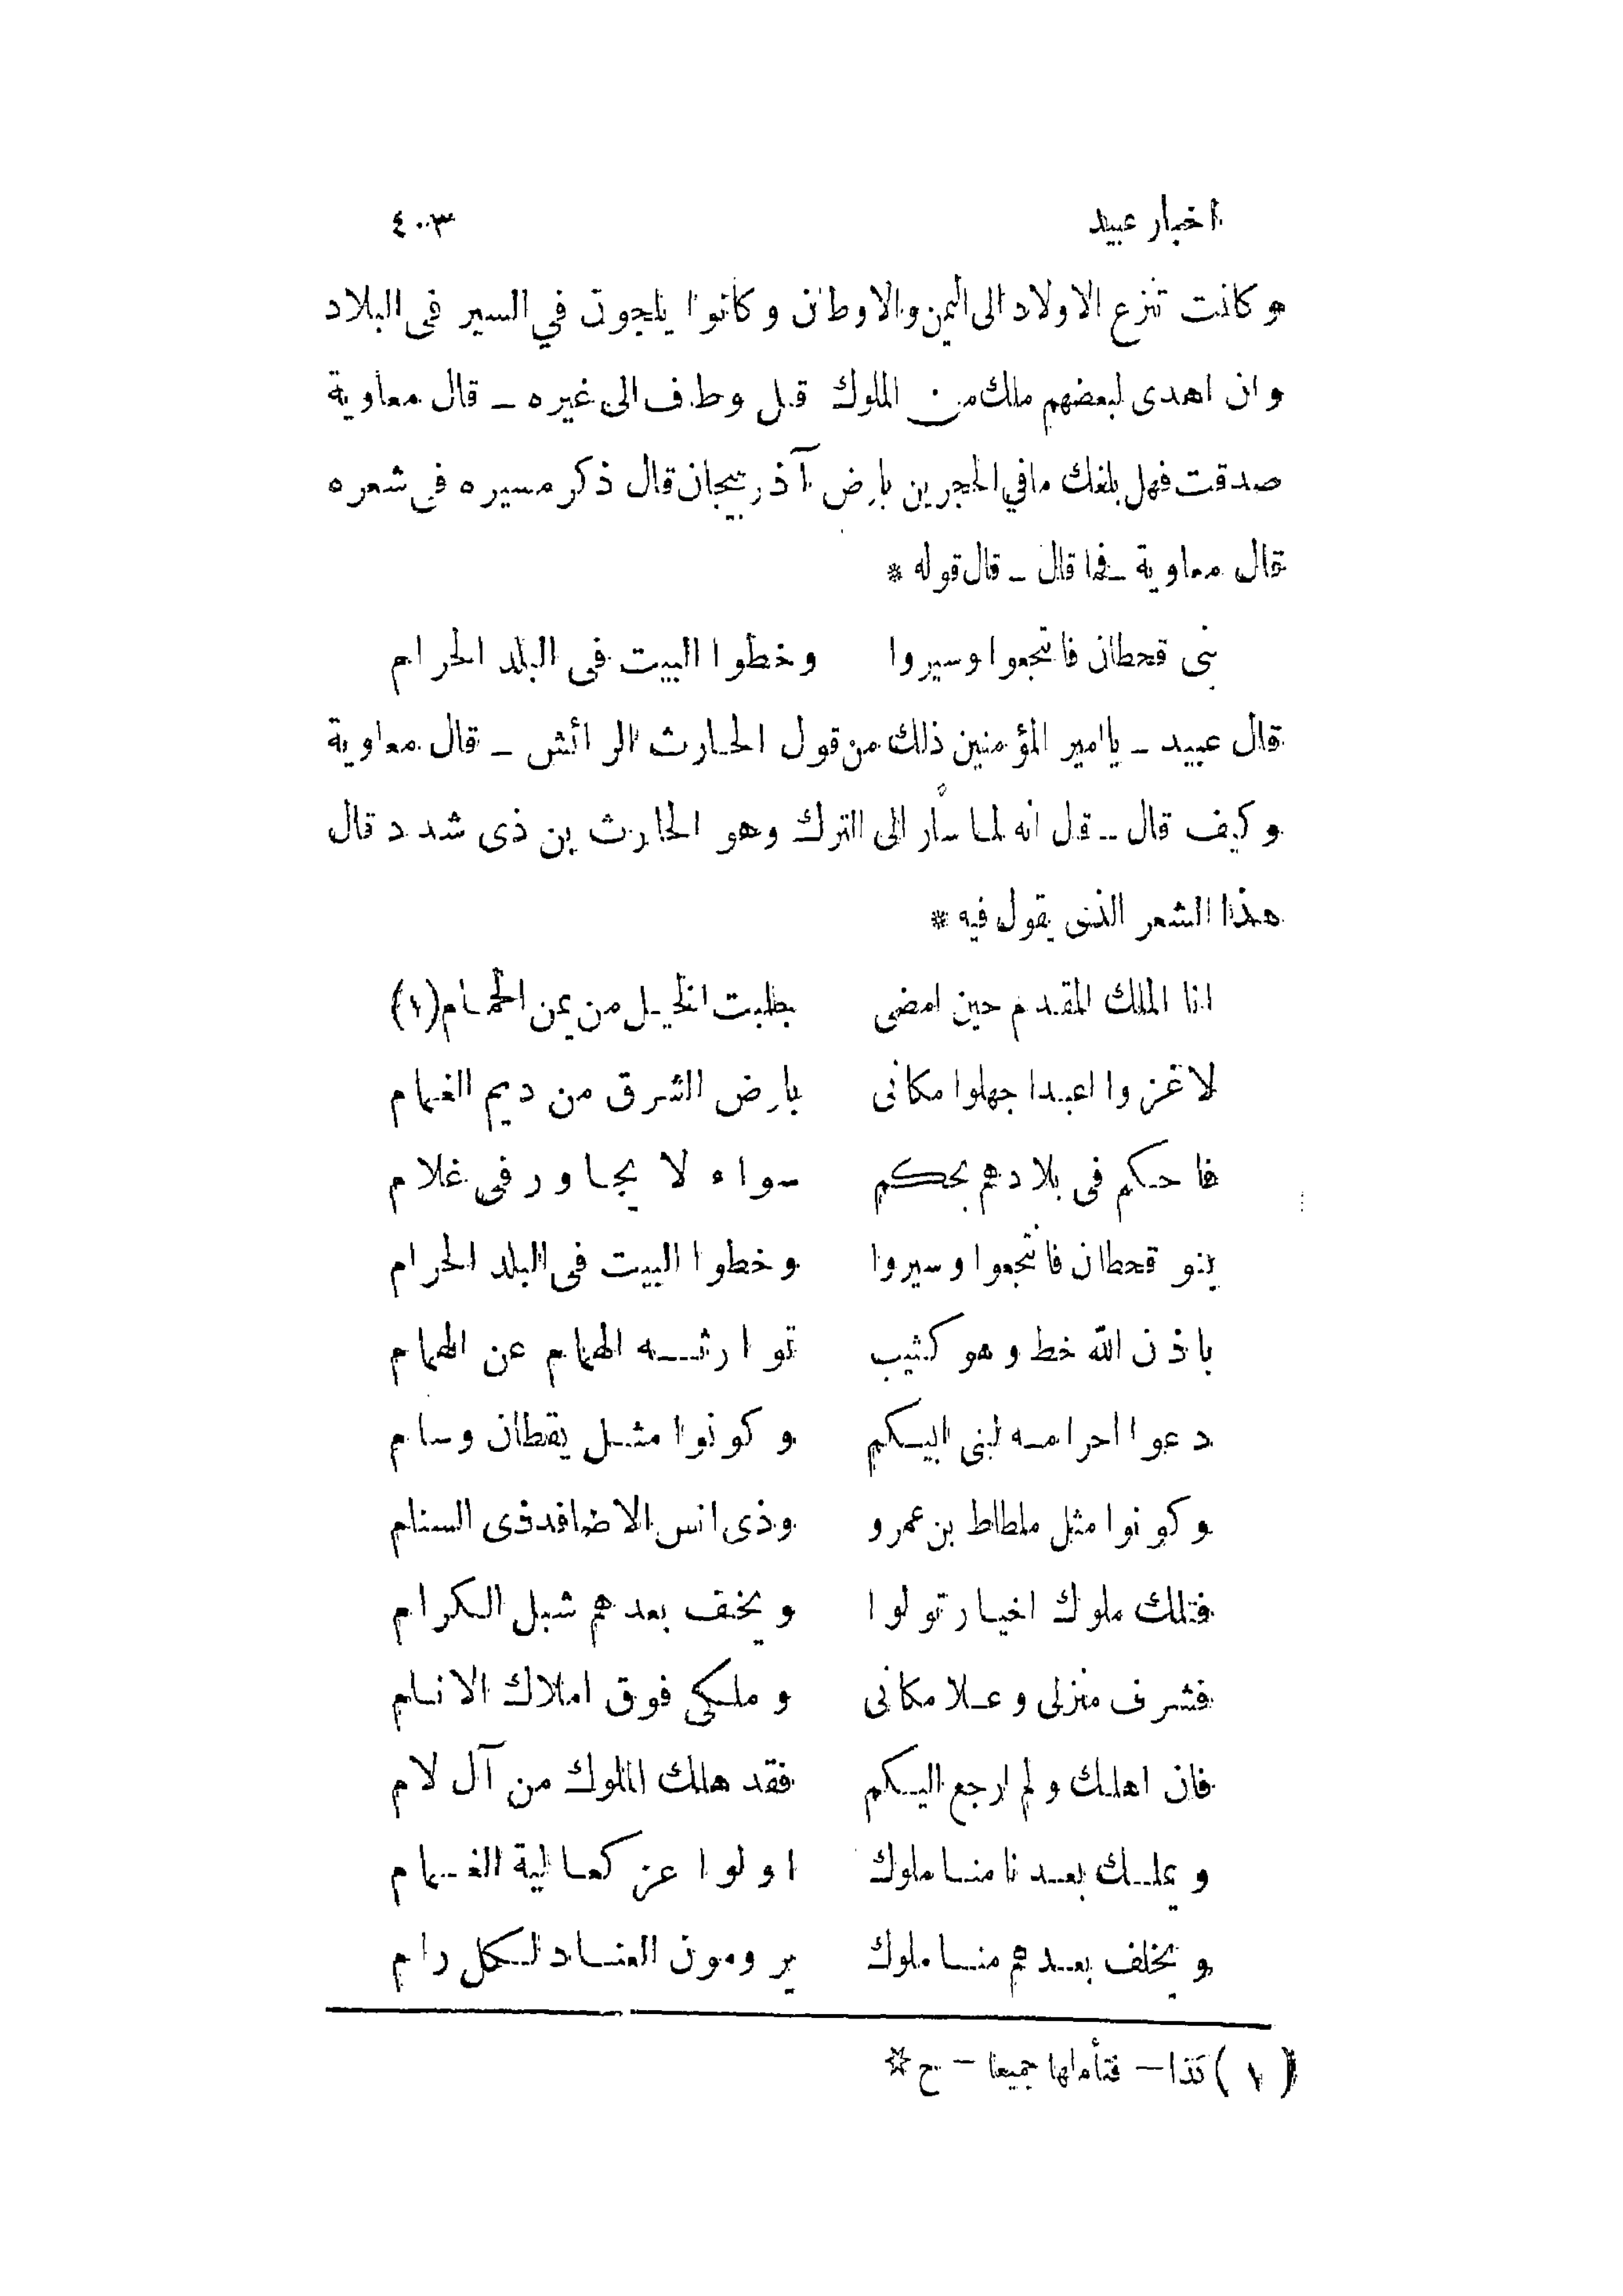 اخبار عبيد ٤٠٣
وكانت تنزع الاولاد الى اليمن والاوطان وكانوا يلجون في السير فى البلاد
وان اهدى لبعضهم ملك من الملوك قبل وطرف الى غيره ـ قال معاوية
صدقت فهل بلغك ما في الحجرين بارض آذربيجان قال ذكر مسيره فى شعره
قال معاوية ـ فما قال ـ قال قوله *
بنى قحطان فانتجعوا وسيروا وخطوا البيت فى البلد الحرام
قال عبيد ـ يا امير المؤمنين ذلك من قول الحارث الرائش ـ قال معاوية
وكيف قال ـ قال انه لما سار الى الترك وهو الحارث بن ذى شدد قال
هذا الشعر الذى يقول فيه *
انا الملك المقدم حين امضى بطلبت الخيل من يمن الحمام (١)
لاغزوا اعبدا جهلوا مكانى بارض الشرق من ديم الغمام
فاحكم فى بلادهم بحكم سواء لا يجاور فى غلام
بنو قحطان فانتجعوا وسيروا وخطوا البيت فى البلد الحرام
باذن الله خط وهو كثيب توارثه الهمام عن الهمام
دعوا احرامه لبنى ابيكم وكونوا مثل يقطان وسام
وكونوا مثل ملطاط بن عمرو وذى انس الاضافد ذى السنام
فتلك ملوك اخيار تولوا ويخلف بعدهم شبل الكرام
فشرف منزلى وعلا مكانى وملكى فوق املاك الانام
فان اهلك ولم ارجع اليكم فقد هلك الملوك من آل لام
ويملك بعدنا منا ملوك اولوا عز كعالية الغمام
ويخلف بعدهم منا ملوك يرومون العناد لكل رام
(١) كذا ـ فتأملها جميعا ـ ح *